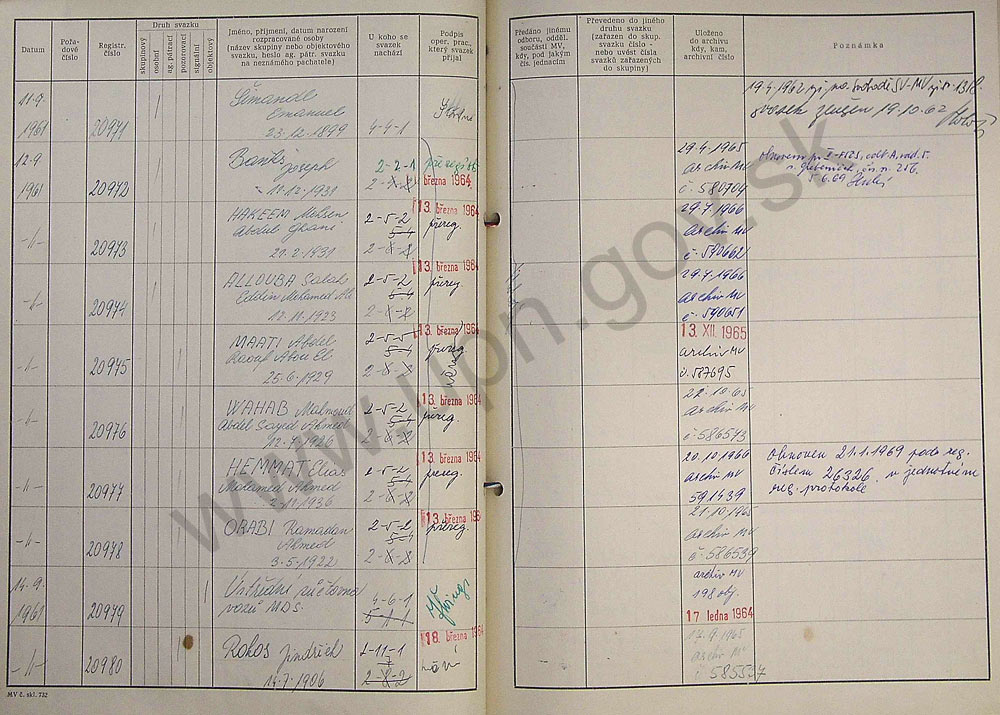 Datum
Pořadové číslo
Registr. číslo
Druh svazku
skupinový
osobní
ag. pátrací
pozorovací
signální
objektový
Jméno, příjmení, datum narození
rozpracované osoby
(název skupiny nebo objektového
svazku, heslo ag. pátr. svazku
na neznámého pachatele)
U koho se
svazek
nachází
Podpis
oper. prac.,
který svazek
přijal
Předáno jinému
odboru, odděl.
součásti MV,
kdy, pod jakým
čís. jednacím
Převedeno do jiného
druhu svazku
(zařazen do skup.
svazku číslo -
nebo uvést čísla
svazků zařazených
do skupiny)
Uloženo
do archivu
kdy, kam,
archivní číslo
Poznámka
11.9.
1961
20971
Šimandl
Emanuel
23.12.1899
4-4-1
19.10.62
12.9
1961
20972
Banks
Joseph
11.12.1930
2-2-1
března 1964
29.4.1965
Archiv MV
č. 580704
5.6.69
-//-
20973
HAKEEM Mohsen
Abdul Ghani
21.2.1931
2-5-2
5-4
2-8-8
13. března 1964
přereg.
29.7.1966
Archiv MV
č. 590662
-//-
20974
ALLOUBA Salah
Eddin Mohamed Ali
12.11.1923
2-5-2
5-4
2-8-8
13. března 1964
přereg
29.7.1966
Archiv MV
č. 590651
-//-
20975
MAATI Abdel
Raouf Abou El
25.6.1929
2-5-5
5-4
2-8-8
13. března 1964
přereg.
13. XII. 1965
archiv MV
č. 587695
-//-
20976
WAHAB Mahmoud
Abdel Sayed Ahmed
12.7.1926
2-5-2
5-4
2-8-8
13. března 1964
přereg.
22.10.65
Archiv MV
č. 586573
-//-
20977
HEMMAT Elias
Mohamed Ahmed
2.11.1936
2-5-2
5-4
2-8-8
13. března 1964
přereg.
20.10.1966
archiv MV
591439
Obnoven 21.1.1969 pod reg.
číslem 26326 v jednotném
reg. protokole
-//-
20978
ORABI Ramadan
Ahmed
3.5.1922
2-5-2
5-4
2-8-8
13. března 1964
přereg.
21.10.1965
archiv MV
č. 586539
14.9.
1961
20979
Ústřední
vozů MDS.
4-6-1
5-1-1
archiv MV
198 obj.
17 ledna 1964
-//-
20980
Rokos Jindřich
14.7.1906
2-11-1
2-8-2
18. března 1964
17.9.1965
archiv MV
č 585537
MV č. skl. 732
www.upn.gov.sk